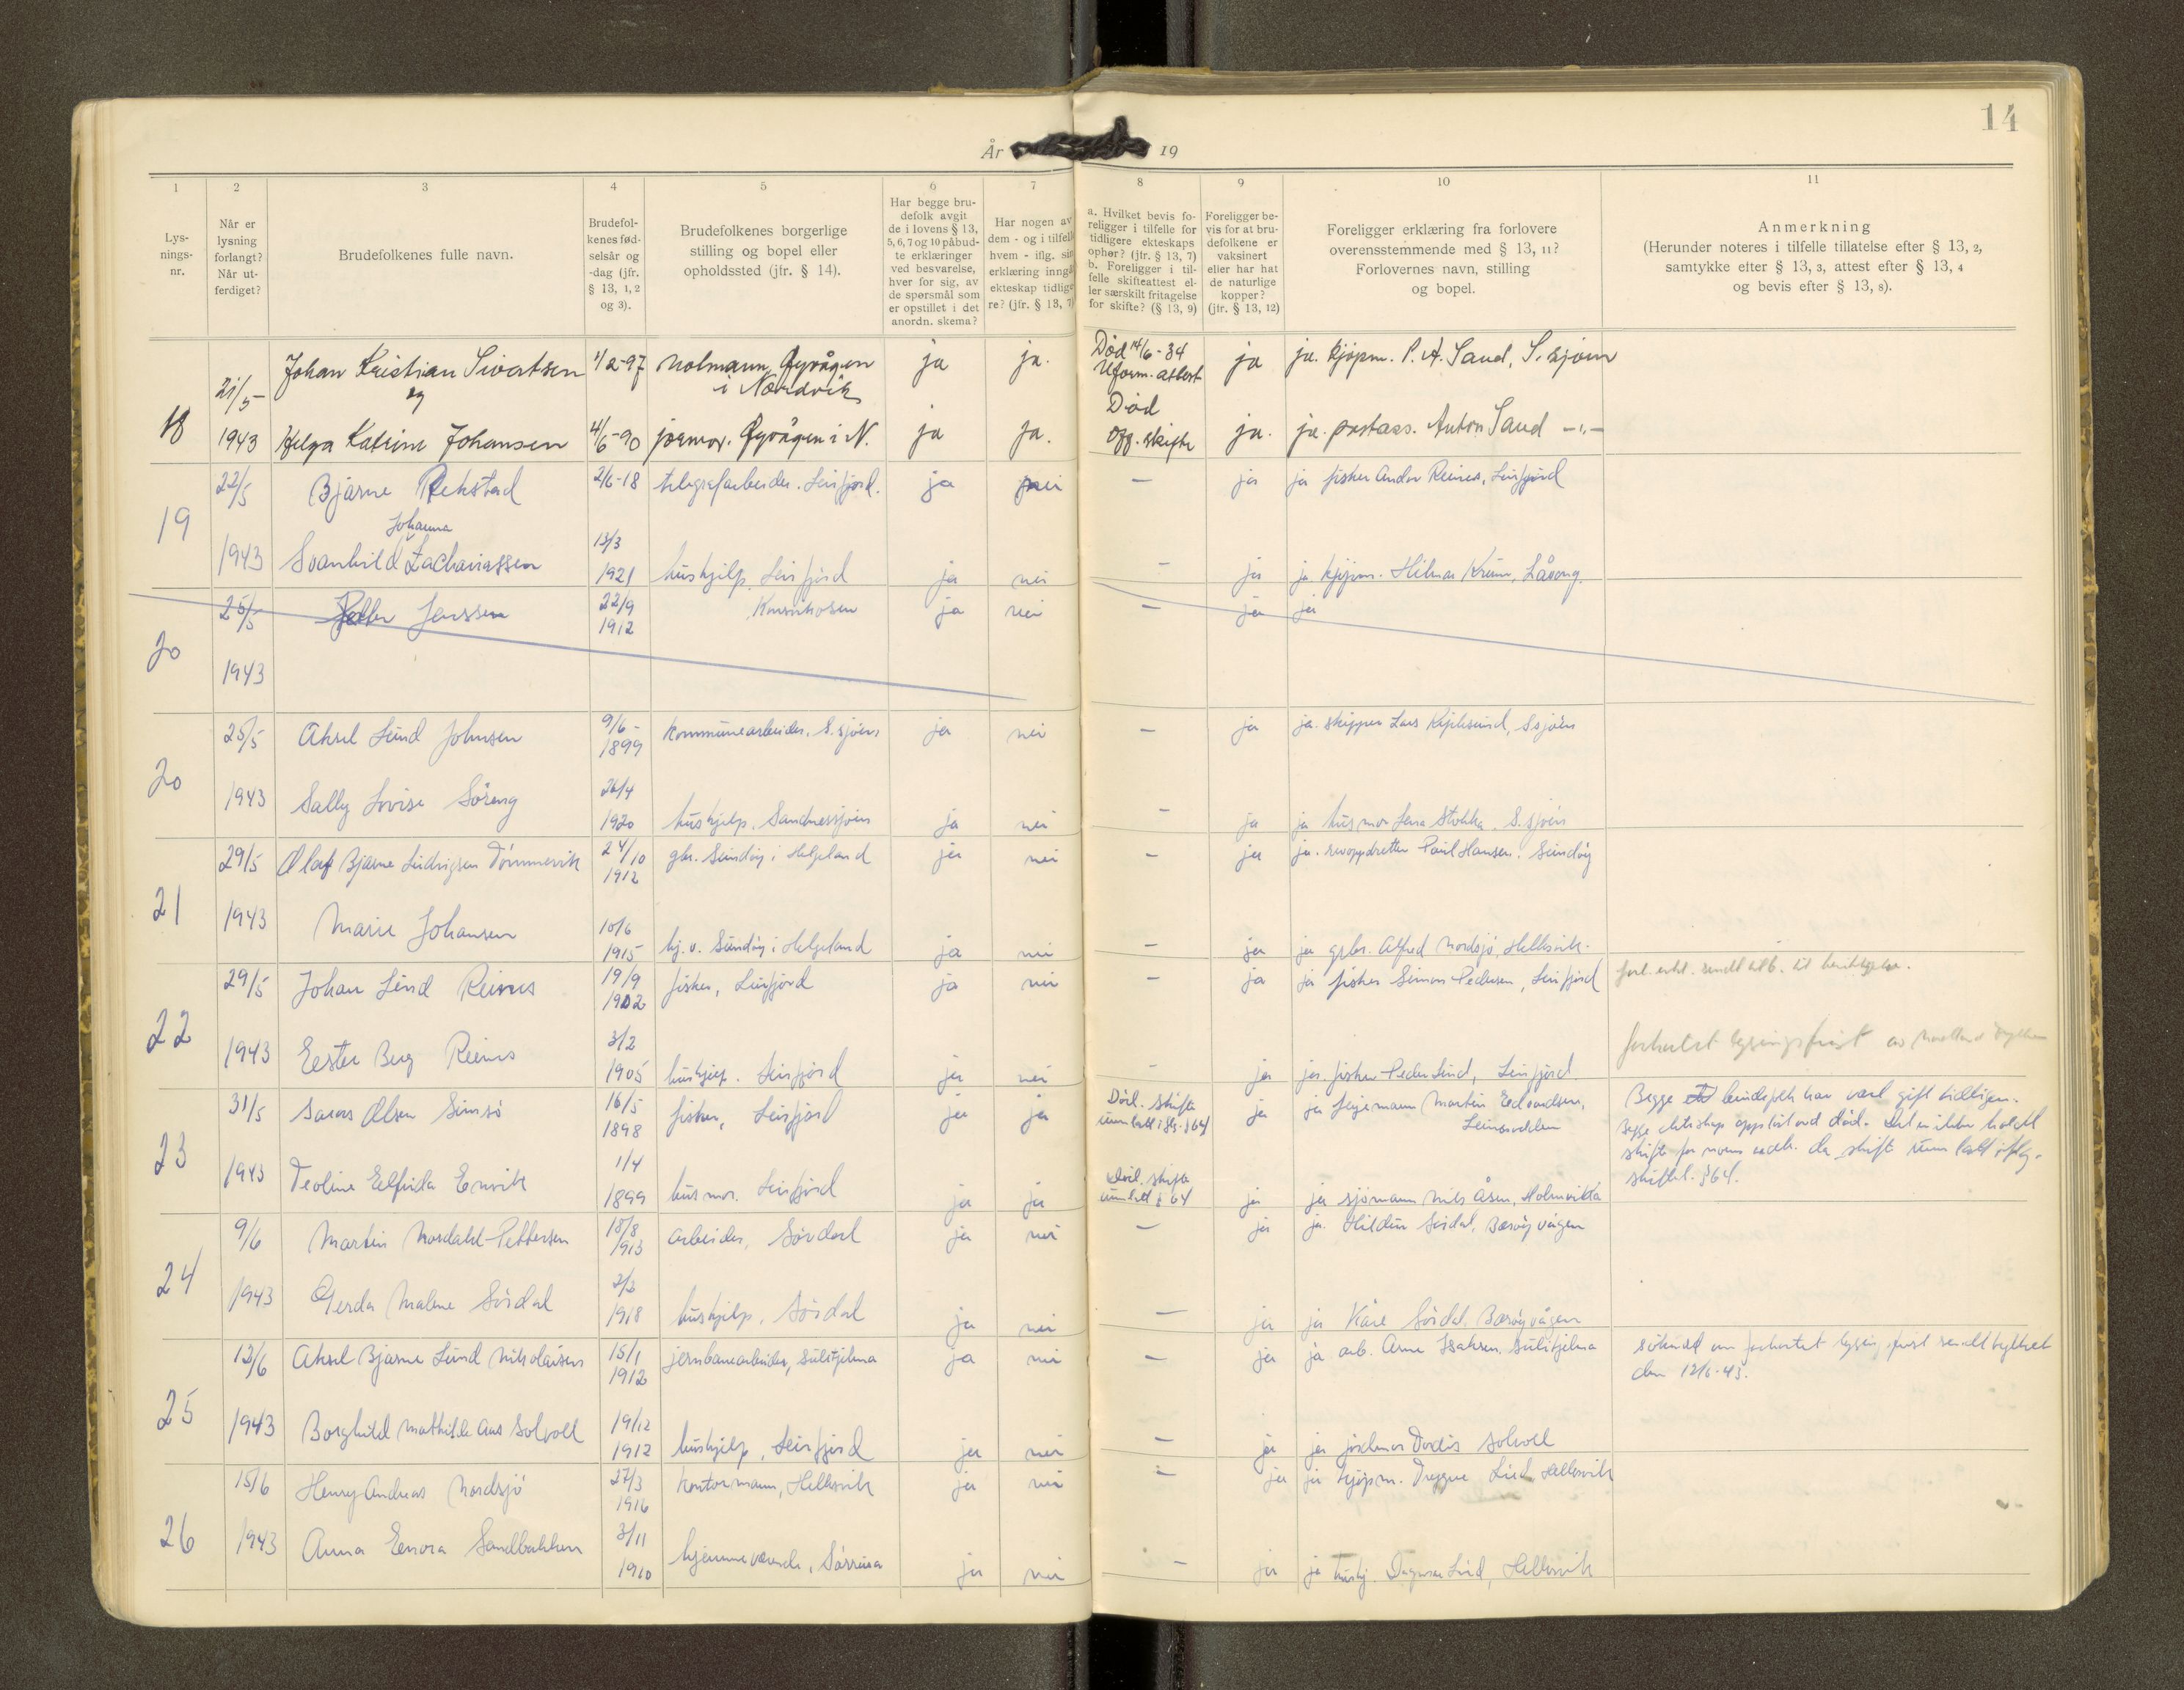 14
År 19
1 2 3 4 5 6 7 8 9 10 11
Lys-
nings-
nr.
Når er
lysning
forlangt?
Når ut-
ferdiget?
Brudefolkenes fulle navn.
Brudefol-
kenes fød-
selsår og
-dag (jfr.
§ 13, 1, 2
og 3).
Brudefolkenes borgerlige
stilling og bopel eller
opholdssted (jfr. § 14).
Har begge bru-
defolk avgit
de i lovens § 13,
5, 6, 7 og 10 påbud-
te erklæringer
ved besvarelse,
hver for sig, av
de spørsmål som
er opstillet i det
anordn. skema?
Har nogen av
dem - og i tilfelle
hvem - iflg. sin
erklæring inngå
ekteskap tidlige
re? (jfr. § 13, 7)
a. Hvilket bevis fo-
religger i tilfelle for
tidligere ekteskaps
ophør? (jfr. § 13, 7)
b. Foreligger i til-
felle skifteattest el-
ler særskilt fritagelse
for skifte? (§ 13, 9)
Foreligger be-
vis for at bru-
defolkene er
vaksinert
eller har hat
de naturlige
kopper?
(jfr. § 13, 12)
Foreligger erklæring fra forlovere
overensstemmende med § 13, 11?
Forlovernes navn, stilling
og bopel.
Anmerkning
(Herunder noteres i tilfelle tillatelse efter § 13, 2,
samtykke efter § 13, 3, attest efter § 13, 4
og bevis efter § 13, 8).
18 21/5- Johan Kristian Sivertsen 1/2-97 notmann, Øyvågen ja ja. Død 14/6-34 ja ja. kjøpm. P. A. Sand, S.sjøen
og i Nordvik Uform. attest
1943 Helga Katrine Johansen 4/6-90 jormor. Øyvågen i N. ja ja. Død off. skifte ja. ja. postass. Anton Sand -"-
19 22/5 Bjarne Rekstad 2/6-18 telegrafarbeider. Leirfjord. ja nei - ja ja fisker Andor Reines, Leirfjord
Johanna
1943 Svanhild Zachariassen 13/3 1921 hushjelp, Leirfjord ja nei - ja ja kjøpm. Hilmar Krum, Låveng.
20 25/5 Jenssen 22/9 1912 ja nei - ja ja
1943
20 25/5 Aksel Lund Johnsen 9/6- 1899 Kommunearbeider, S.sjøen, ja nei - ja ja. skipper Lars S.sjøen
1943 Sally Lovise Søreng 26/4 1920 hushjelp, Sandnessjøen ja nei - ja ja husmor Lena Stokka, S.sjøen
21 29/5 Olaf Bjarne Ludvigsen Tømmervik 24/10 1912 gbr. Sundøy i Helgeland ja nei - ja ja. revoppdretter Paul Hansen. Sundøy
1943 Marie Johansen 10/6 1915 hj. v. Sundøy i Helgeland ja nei - ja ja grbr. Alfred Nordsjø, Hellesvik.
22 29/5 Johan Lind Reines 19/9 1902 fisker, Leirfjord ja nei - ja ja fisker Simon Pedersen, Leirfjord
1943 Ester Berg Reines 3/2 1905 hushjelp. Leirfjord ja nei - ja ja. fisker Peder Lind, Leirfjord
forkortet lysingsfrist av Nordland
23 31/5 Olsen Simsø 16/5 1898 fisker, Leirfjord ja ja Død. skifte unnlatt iflg. § 64 ja ja Martin Edvardsen,
Begge brudefolk har vært gift tidligere.
Begge ekteskap oppløst ved død. Det er ikke holdt
skifte for noens vedk. da skifte unnlatt iflg.
skiftel. § 64.
1943 Teoline Elfrida Envik 1/4 1899 husmor. Leirfjord ja ja Død. skifte unnlatt § 64 ja ja sjømann Nils Åsen, Holmvikta
24 9/6 Martin Mosdahl-Pettersen 18/8 1913 arbeider, Sørdal ja nei - ja ja. Sørdal, Bærøyvågen
1943 Gerda Malene Sørdal 2/2 1918 hushjelp, Sørdal ja nei - ja ja Kåre Sørdal, Bærøyvågen
25 12/6 Aksel Bjarne Lund Nikolaisen 15/1 1912 jernbanearbeider, Sulitjelma ja nei - ja ja arb. Arne Isaksen, Sulitjelma
søknad om forkortet lysingsfrist sendt fylket
den 12/6-43.
1943 Borghild Mathilde Aas Solvoll 19/12 1912 hushjelp, Leirfjord ja nei - ja ja jordmor Dordis Solvoll
26 15/6 Henry Andreas Nordsjø 27/3 1916 kontormann, Hellesvik ja nei - ja ja kjøpm. Trygve Lind, Hellesvik
1943 Anna Enora Sandbakken 3/11 1910 hjemmeværende, Sørreisa ja nei - ja ja hushj. Dagmar Lind, Hellesvik